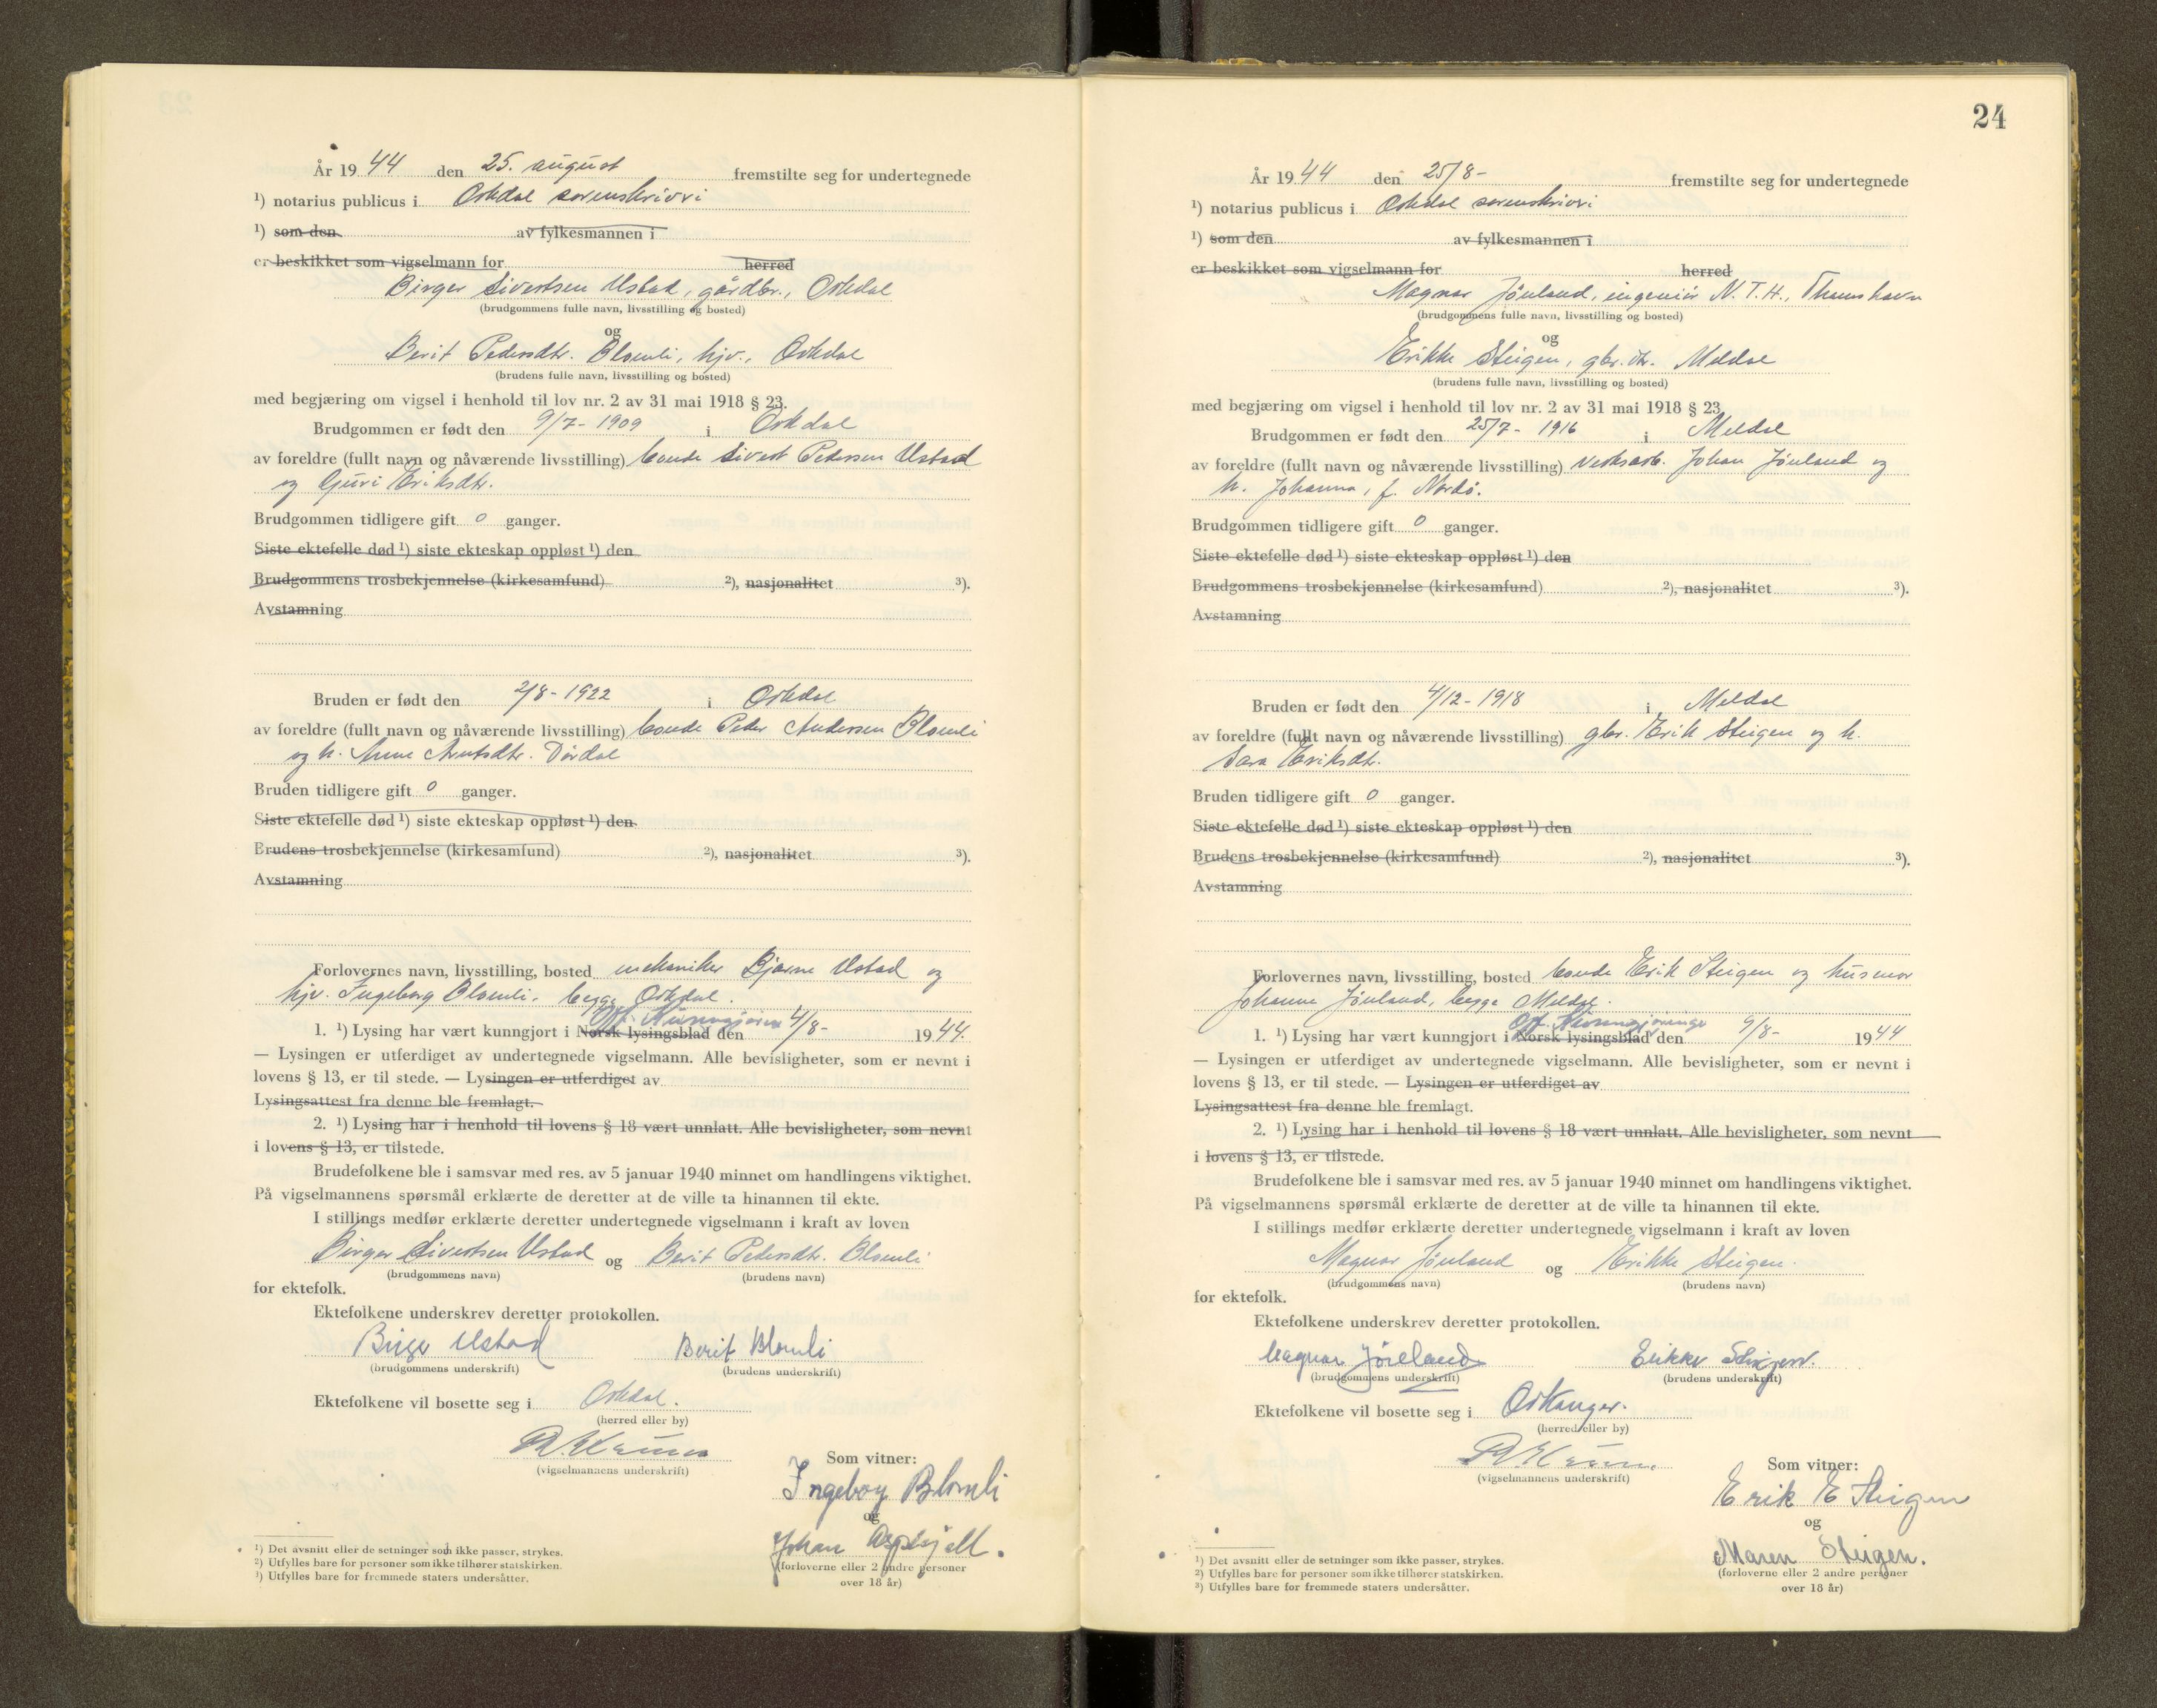 År 1944 den 25. august fremstilte seg for undertegnede
¹) notarius publicus i Orkdal sorenskriveri
¹) som den av fylkesmannen i
er beskikket som vigselmann for herred
Birger Sivertsen Ustad, gårdbr., Orkdal
(brudgommens fulle navn, livsstilling og bosted)
og
Berit Pedersdtr. Blomli, hjv., Orkdal
(brudens fulle navn, livsstilling og bosted)
med begjæring om vigsel i henhold til lov nr. 2 av 31 mai 1918 § 23.
Brudgommen er født den 9/7 - 1909 i Orkdal
av foreldre (fullt navn og nåværende livsstilling) bonde Sivert Pedersen Ustad
og Guri Eriksdtr.
Brudgommen tidligere gift 0 ganger.
Siste ektefelle død ¹) siste ekteskap oppløst ¹) den
Brudgommens trosbekjennelse (kirkesamfund) ²), nasjonalitet ³).
Avstamning
Bruden er født den 2/8 - 1922 i Orkdal
av foreldre (fullt navn og nåværende livsstilling) bonde Peder Andersen Blomli
og h. Anne Arntsdtr. Dørdal
Bruden tidligere gift 0 ganger.
Siste ektefelle død ¹) siste ekteskap oppløst ¹) den
Brudens trosbekjennelse (kirkesamfund) ²), nasjonalitet ³).
Avstamning
Forlovernes navn, livsstilling, bosted mekaniker Bjarne Ustad og
hjv. Ingeborg Blomli, begge Orkdal.
Off. Kunngjøring
1. ¹) Lysing har vært kunngjort i Norsk lysingsblad den 4/8 - 1944.
— Lysingen er utferdiget av undertegnede vigselmann. Alle bevisligheter, som er nevnt i
lovens § 13, er til stede. — Lysingen er utferdiget av
Lysingsattest fra denne ble fremlagt.
2. ¹) Lysing har i henhold til lovens § 18 vært unnlatt. Alle bevisligheter, som nevnt
i lovens § 13, er tilstede.
Brudefolkene ble i samsvar med res. av 5 januar 1940 minnet om handlingens viktighet.
På vigselmannens spørsmål erklærte de deretter at de ville ta hinannen til ekte.
I stillings medfør erklærte deretter undertegnede vigselmann i kraft av loven
Birger Sivertsen Ustad og Berit Pedersdtr. Blomli
(brudgommens navn) (brudens navn)
for ektefolk.
Ektefolkene underskrev deretter protokollen.
Birger Ustad Berit Blomli
(brudgommens underskrift) (brudens underskrift)
Ektefolkene vil bosette seg i Orkdal.
(herred eller by)
(vigselmannens underskrift)
Som vitner:
Ingeborg Blomli
og
Johan
(forloverne eller 2 andre personer
over 18 år)
¹) Det avsnitt eller de setninger som ikke passer, strykes.
²) Utfylles bare for personer som ikke tilhører statskirken.
³) Utfylles bare for fremmede staters undersåtter.
24
År 1944 den 25/8 - fremstilte seg for undertegnede
¹) notarius publicus i Orkdal sorenskriveri
¹) som den av fylkesmannen i
er beskikket som vigselmann for herred
Magnar Jönland, ingeniör N.T.H., Thamshavn
(brudgommens fulle navn, livsstilling og bosted)
og
Erikke Steigen, gbr. dtr. Meldal
(brudens fulle navn, livsstilling og bosted)
med begjæring om vigsel i henhold til lov nr. 2 av 31 mai 1918 § 23
Brudgommen er født den 25/7 - 1916 i Meldal
av foreldre (fullt navn og nåværende livsstilling) verksarb. Johan Jönland og
h. Johanna, f. Nordö.
Brudgommen tidligere gift 0 ganger.
Siste ektefelle død ¹) siste ekteskap oppløst ¹) den
Brudgommens trosbekjennelse (kirkesamfund) ²), nasjonalitet ³).
Avstamning
Bruden er født den 4/12 - 1918 i Meldal
av foreldre (fullt navn og nåværende livsstilling) gbr. Erik Steigen og h.
Sara Eriksdtr.
Bruden tidligere gift 0 ganger.
Siste ektefelle død ¹) siste ekteskap oppløst ¹) den
Brudens trosbekjennelse (kirkesamfund) ²), nasjonalitet ³).
Avstamning
Forlovernes navn, livsstilling, bosted bonde Erik Steigen og husmor
Johanna Jönland, begge Meldal.
Off. Kunngjøringer
1. ¹) Lysing har vært kunngjort i Norsk lysingsblad den 9/8 - 1944
— Lysingen er utferdiget av undertegnede vigselmann. Alle bevisligheter, som er nevnt i
lovens § 13, er til stede. — Lysingen er utferdiget av
Lysingsattest fra denne ble fremlagt.
2. ¹) Lysing har i henhold til lovens § 18 vært unnlatt. Alle bevisligheter, som nevnt
i lovens § 13, er tilstede.
Brudefolkene ble i samsvar med res. av 5 januar 1940 minnet om handlingens viktighet.
På vigselmannens spørsmål erklærte de deretter at de ville ta hinannen til ekte.
I stillings medfør erklærte deretter undertegnede vigselmann i kraft av loven
Magnar Jönland og Erikke Steigen.
(brudgommens navn) (brudens navn)
for ektefolk.
Ektefolkene underskrev deretter protokollen.
Magnar Jönland Erikke Steigen.
(brudgommens underskrift) (brudens underskrift)
Ektefolkene vil bosette seg i Orkanger.
(herred eller by)
(vigselmannens underskrift)
Som vitner:
Erik E Steigen
og
Maren Steigen.
(forloverne eller 2 andre personer
over 18 år)
¹) Det avsnitt eller de setninger som ikke passer, strykes.
²) Utfylles bare for personer som ikke tilhører statskirken.
³) Utfylles bare for fremmede staters undersåtter.